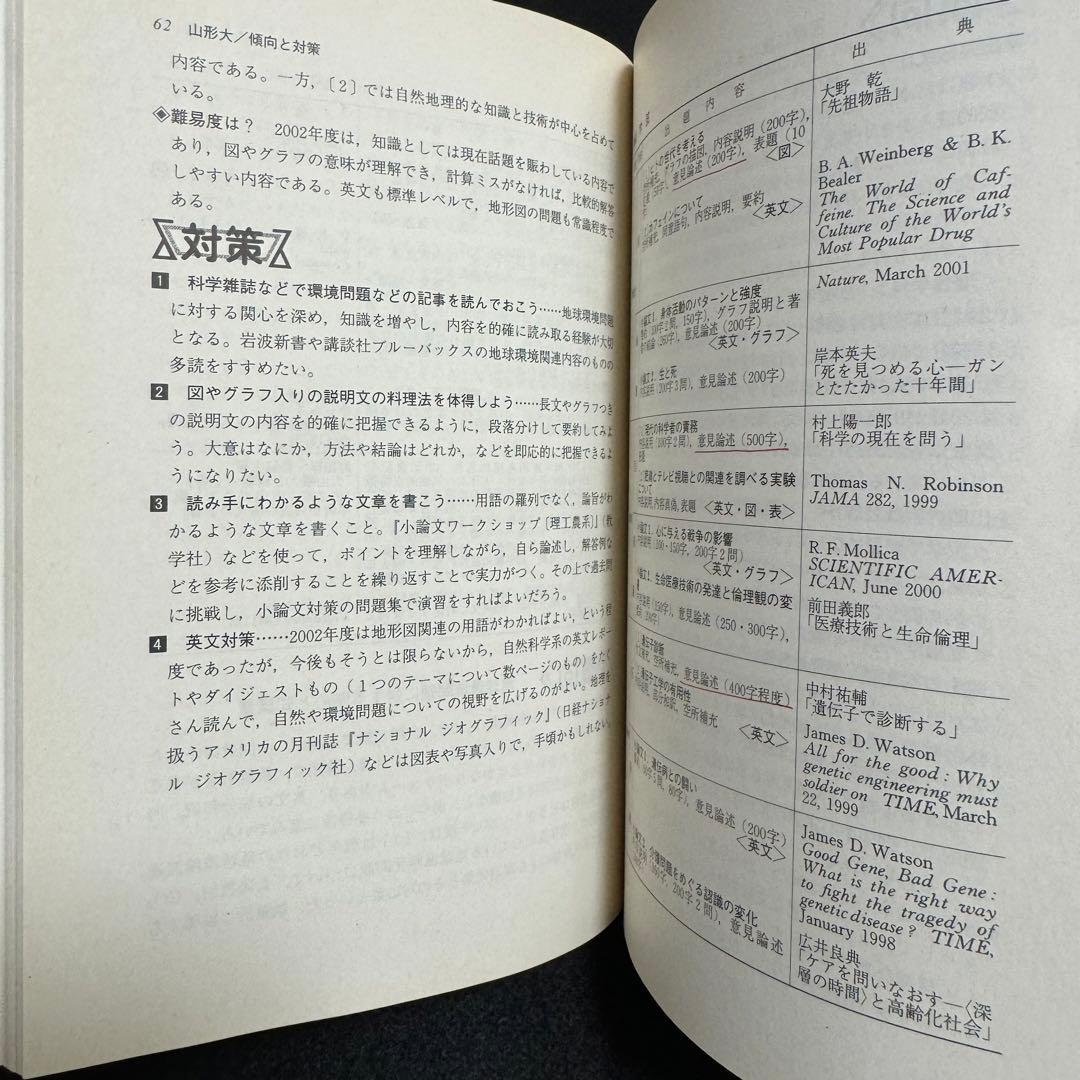 62 山形大／傾向と対策
内容である。一方,〔2〕では自然地理的な知識と技術が中心を占めて
いる。
◈難易度は？ 2002年度は，知識としては現在話題を賑わしている内容で
あり，図やグラフの意味が理解でき，計算ミスがなければ，比較的解答
しやすい内容である。英文も標準レベルで，地形図の問題も常識程度で
ある。
対策
1 科学雑誌などで環境問題などの記事を読んでおこう……地球環境問題
に対する関心を深め，知識を増やし，内容を的確に読み取る経験が大切
となる。岩波新書や講談社ブルーバックスの地球環境関連内容のものの
多読をすすめたい。
2 図やグラフ入りの説明文の料理法を体得しよう……長文やグラフつき
の説明文の内容を的確に把握できるように，段落分けして要約してみよ
う。大意はなにか，方法や結論はどれか，などを即応的に把握できるよ
うになりたい。
3 読み手にわかるような文章を書こう……用語の羅列でなく，論旨がわ
かるような文章を書くこと。『小論文ワークショップ〔理工農系〕』（教
学社）などを使って，ポイントを理解しながら，自ら論述し，解答例な
どを参考に添削することを繰り返すことで実力がつく。その上で過去問
に挑戦し，小論文対策の問題集で演習をすればよいだろう。
4 英文対策……2002年度は地形図関連の用語がわかればよい，という程
度であったが，今後もそうとは限らないから，自然科学系の英文レポー
トやダイジェストもの（１つのテーマについて数ページのもの）をたく
さん読んで，自然や環境問題についての視野を広げるのがよい。地理を
扱うアメリカの月刊誌『ナショナル ジオグラフィック』（日経ナショナ
ル ジオグラフィック社）などは図表や写真入りで，手頃かもしれない。
出題内容
出典
を考える
グラフの描図，内容説明（200字），
意見論述（200字），表題（10
〈図〉
大野 乾
「先祖物語」
カフェインについて
同意語句，内容説明，要約
〈英文〉
B. A. Weinberg & B. K.
Bealer
The World of Caf-
feine. The Science and
Culture of the World's
Most Popular Drug
身体活動のパターンと強度
150字），グラフ説明と著
意見論述（200字）
〈英文・グラフ〉
Nature, March 2001
生と死
（200字3問），意見論述（200字）
岸本英夫
「死を見つめる心―ガン
とたたかった十年間」
現代の科学者の責務
意見論述（500字），
村上陽一郎
「科学の現在を問う」
とテレビ視聴との関連を調べる実験
について
内容真偽，表題 〈英文・図・表〉
Thomas N. Robinson
JAMA 282, 1999
心に与える戦争の影響
（100・150字，200字2問）
〈英文・グラフ〉
R. F. Mollica
SCIENTIFIC AMER-
ICAN, June 2000
生命医療技術の発達と倫理観の変
意見論述（250・300字），
前田義郎
「医療技術と生命倫理」
遺伝子診断
空所補充，意見論述（400字程度）
中村祐輔
「遺伝子で診断する」
遺伝子工学の有用性
空所補充
〈英文〉
James D. Watson
All for the good : Why
genetic engineering must
soldier on TIME, March
22, 1999
遺伝病との闘い
80字），意見論述（200字）
〈英文〉
James D. Watson
Good Gene, Bad Gene :
What is the right way
to fight the tragedy of
genetic disease? TIME,
January 1998
介護問題をめぐる認識の変化
200字2問），意見論述
広井良典
「ケアを問いなおす―〈深
層の時間〉と高齢化社会」